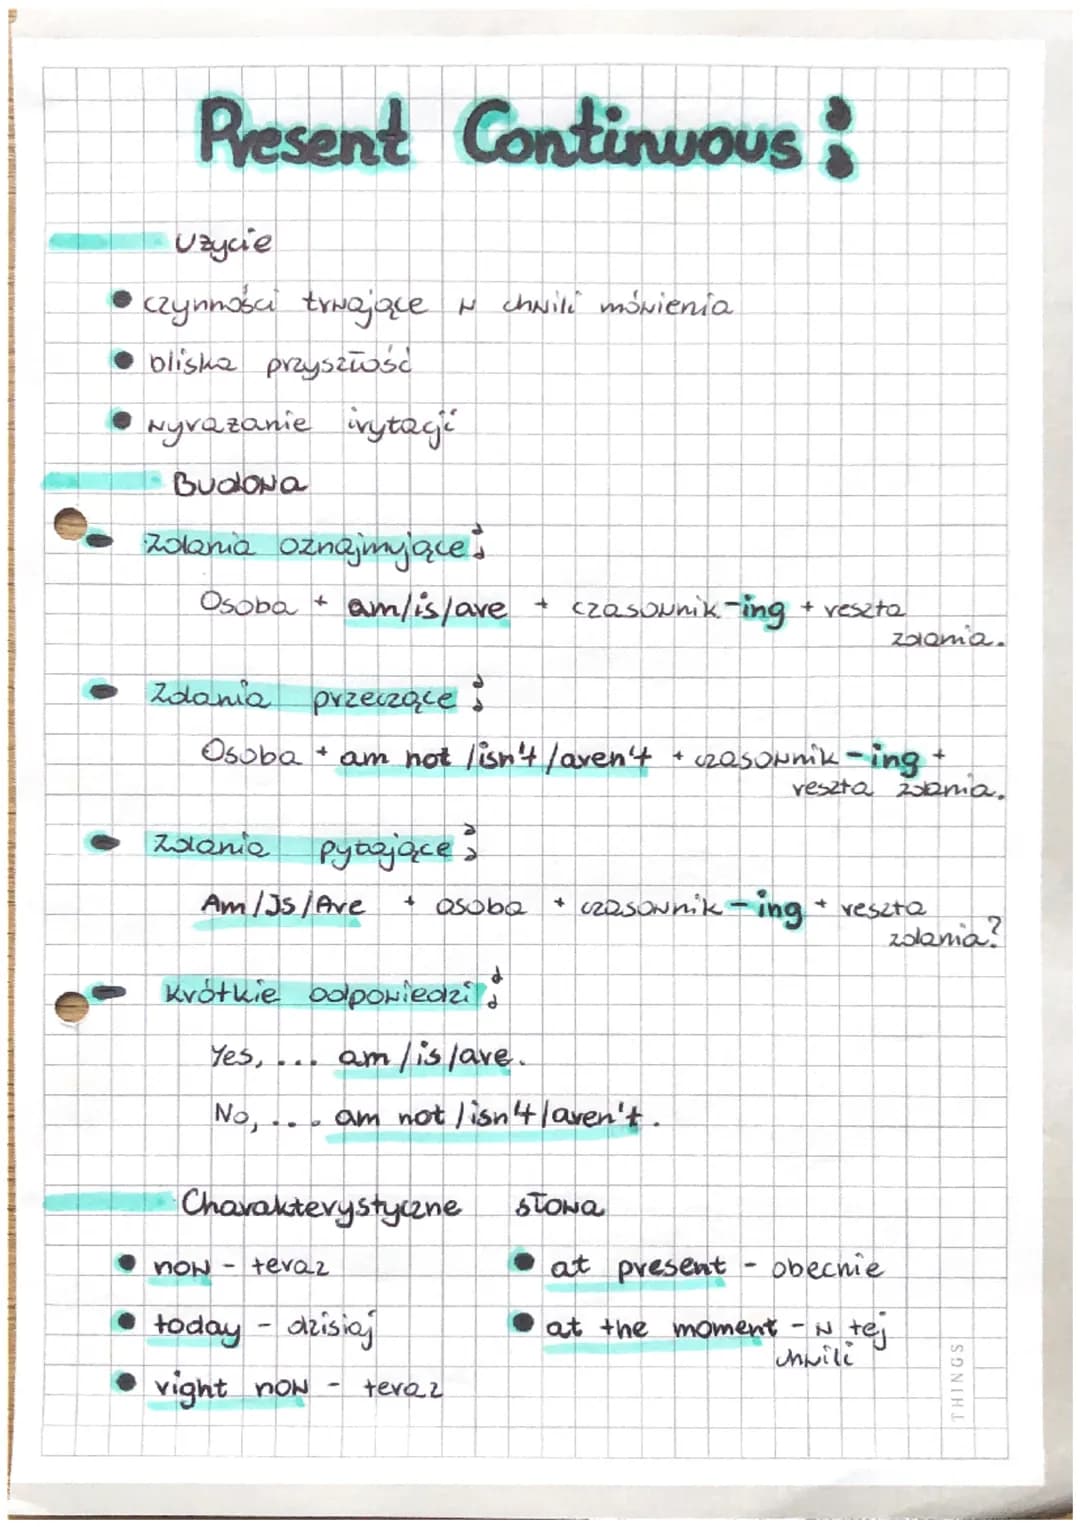 Present Continuous:
Użycie
czynności trwające w chwili mówienia
bliska przyszłość
wyrażanie irytacji
Budowa
Zdania oznajmujące:
Osoba + am/is/are + czasownik-ing + reszta
zdania.
Zdania przeczące:
Osoba + am not /isn't/aren't + czasownik-ing +
reszta zdania.
Zdania pytające:
Am/Is/Are + osoba + czasownik-ing + reszta
zdania?
Krótkie odpowiedzi:
Yes, ... am/is/are.
No, ... am not/isn't/aren't.
Charakterystyczne słowa
now - teraz
today - dzisiaj
right now - teraz
at present - obecnie
at the moment - w tej
chwili
THINGS